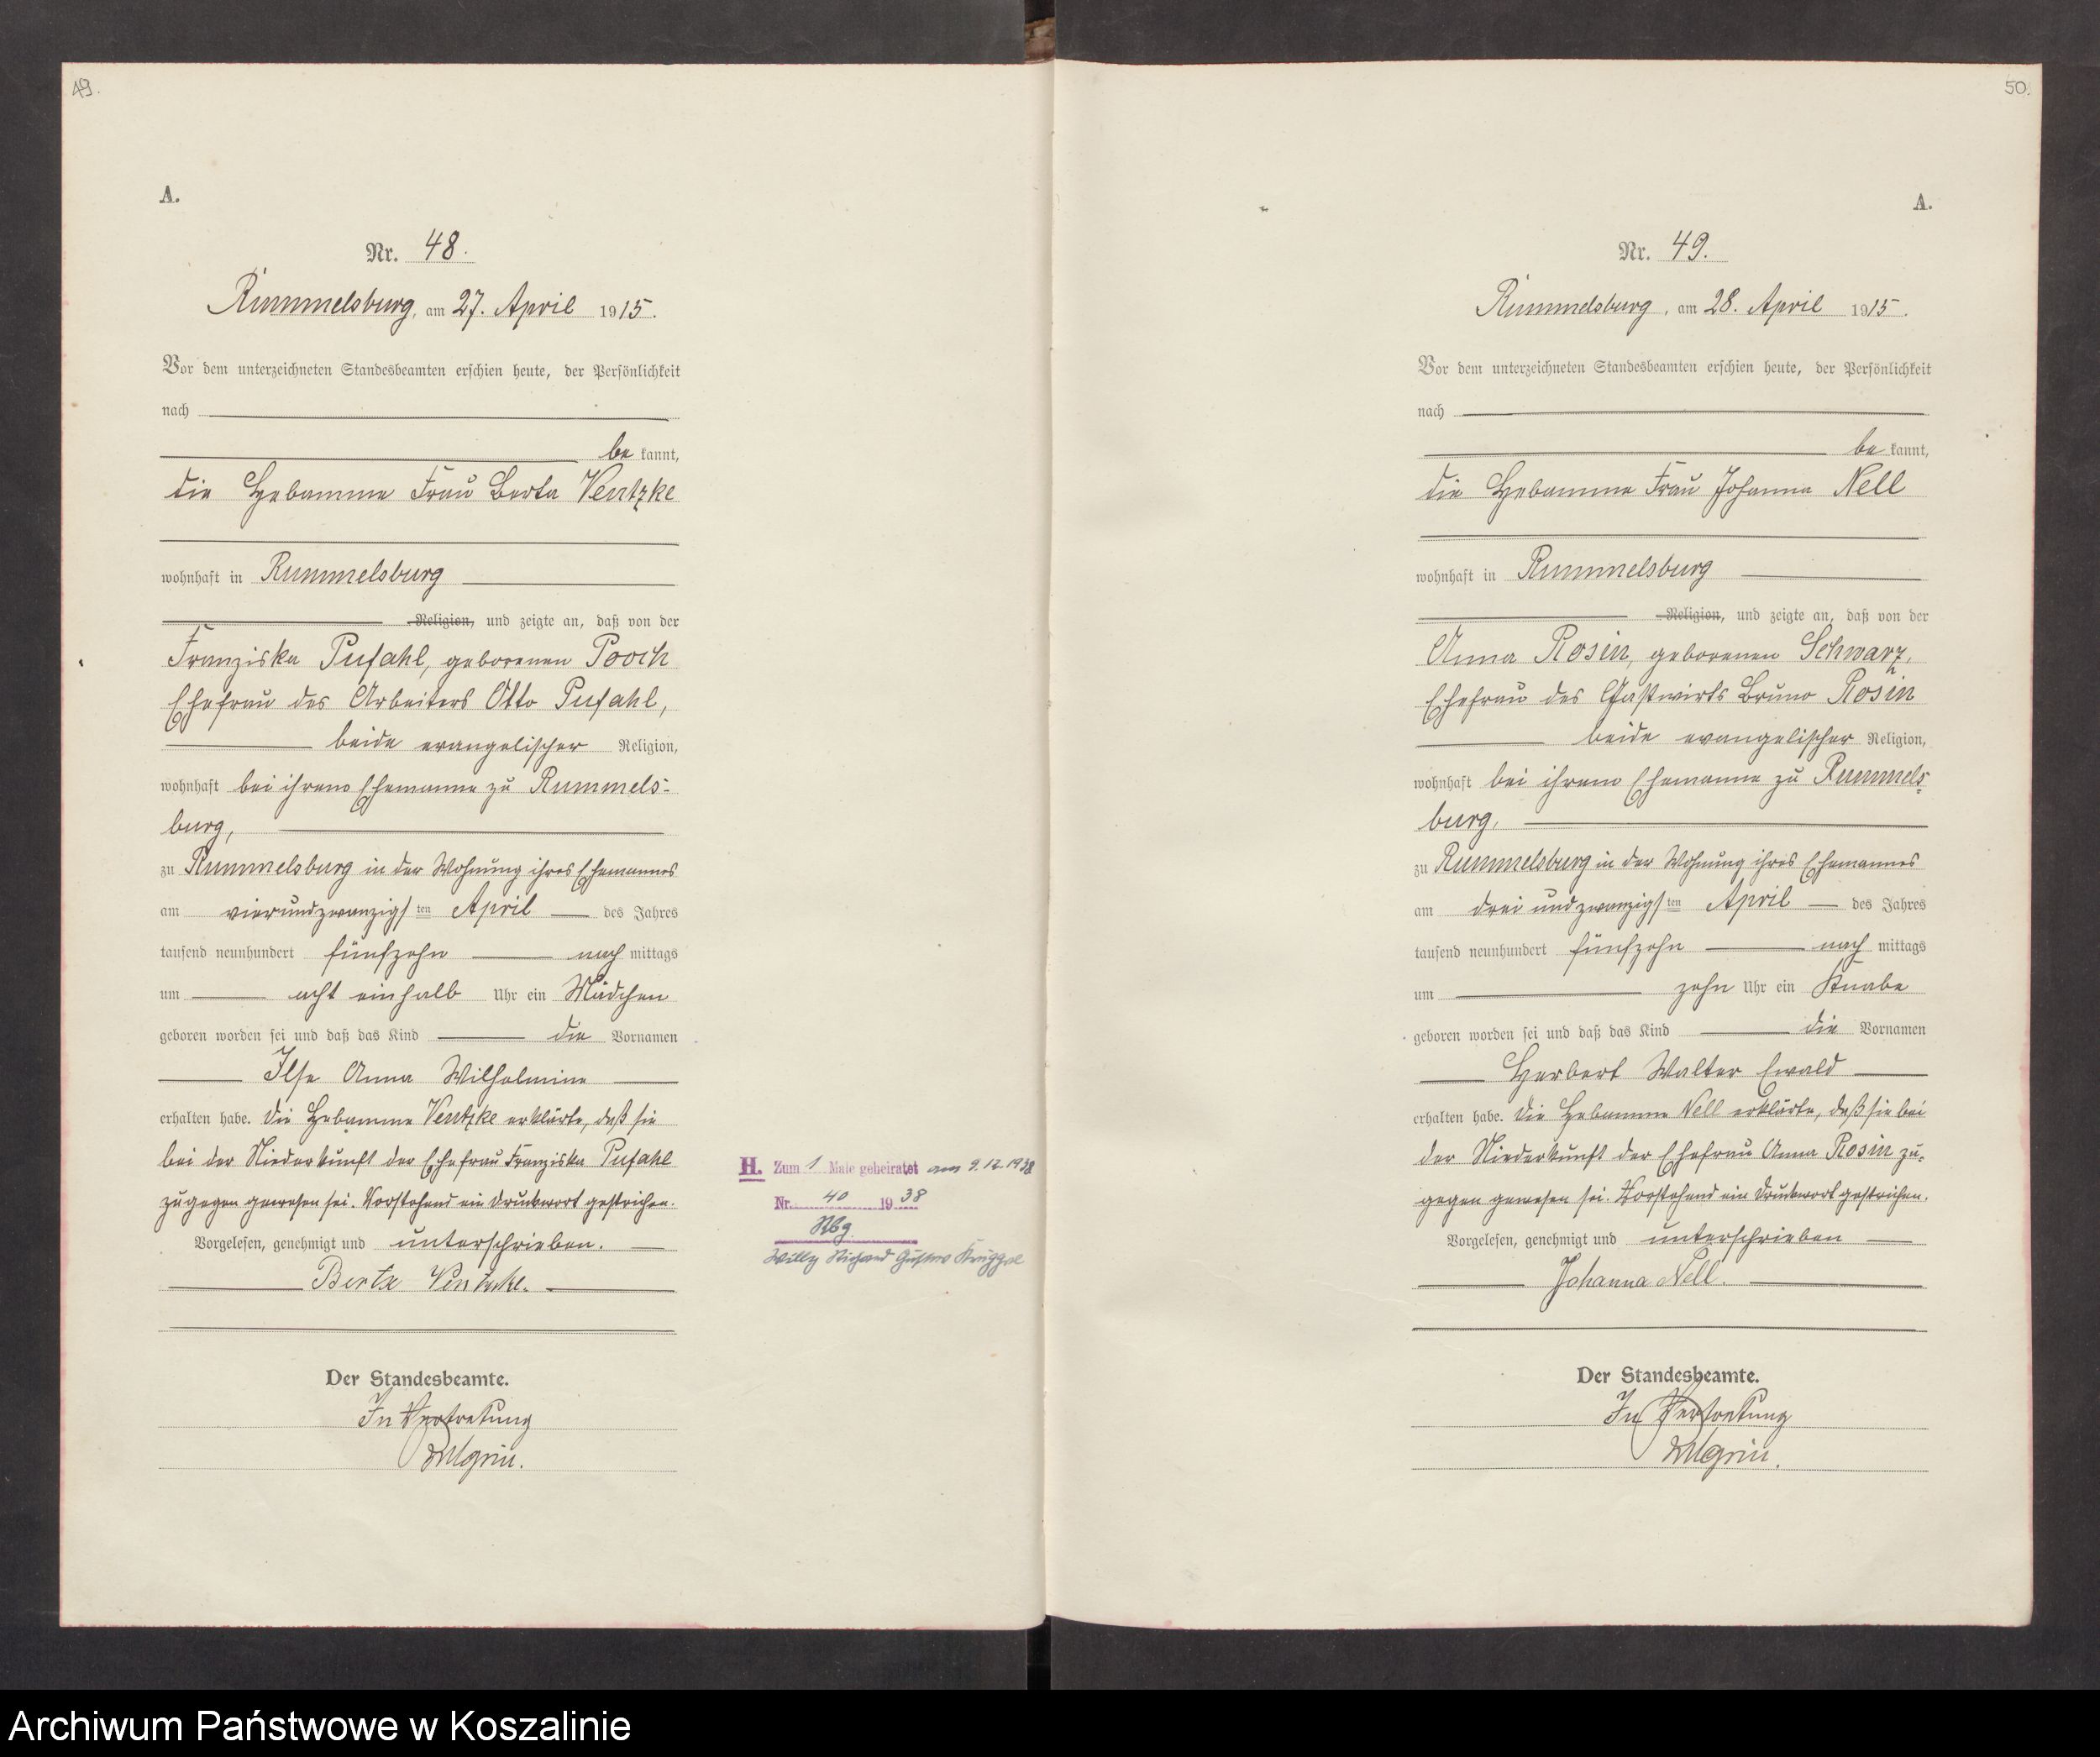 49.
A.
Nr. 48.
Rummelsburg, am 27. April 1915.
Vor dem unterzeichneten Standesbeamten erschien heute, der Persönlichkeit
nach
be kannt,
die Hebamme Frau Berta Ventzke
wohnhaft in Rummelsburg
Religion, und zeigte an, daß von der
Franziska Pufahl, geborenen Pooch
Ehefrau des Arbeiters Otto Pufahl,
beide evangelischer Religion,
wohnhaft bei ihrem Ehemanne zu Rummels-
burg,
zu Rummelsburg in der Wohnung ihres Ehemannes
am vierundzwanzigsten April des Jahres
tausend neunhundert fünfzehn nach mittags
um acht einhalb Uhr ein Mädchen
geboren worden sei und daß das Kind die Vornamen
Ilse Anna Wilhelmine
erhalten habe. Die Hebamme Ventzke erklärte, daß sie
bei der Niederkunft der Ehefrau Franziska Pufahl
zugegen gewesen sei. Vorstehend ein Druckwort gestrichen.
Vorgelesen, genehmigt und unterschrieben.
Berta Ventzke.
Der Standesbeamte.
In Vertretung
H. Zum 1 Male geheiratet am 9.12.1938
Nr. 40 1938
Rbg.
Willy Richard Gustav Krüggel
50.
A.
Nr. 49.
Rummelsburg, am 28. April 1915.
Vor dem unterzeichneten Standesbeamten erschien heute, der Persönlichkeit
nach
be kannt,
die Hebamme Frau Johanna Nell
wohnhaft in Rummelsburg
Religion, und zeigte an, daß von der
Anna Rosin, geborenen Schwarz,
Ehefrau des Gastwirts Bruno Rosin
beide evangelischer Religion,
wohnhaft bei ihrem Ehemanne zu Rummels-
burg,
zu Rummelsburg in der Wohnung ihres Ehemannes
am dreiundzwanzigsten April des Jahres
tausend neunhundert fünfzehn nach mittags
um zehn Uhr ein Knabe
geboren worden sei und daß das Kind die Vornamen
Herbert Walter Ewald
erhalten habe. Die Hebamme Nell erklärte, daß sie bei
der Niederkunft der Ehefrau Anna Rosin zu-
gegen gewesen sei. Vorstehend ein Druckwort gestrichen.
Vorgelesen, genehmigt und unterschrieben
Johanna Nell.
Der Standesbeamte.
In Vertretung
Archiwum Państwowe w Koszalinie